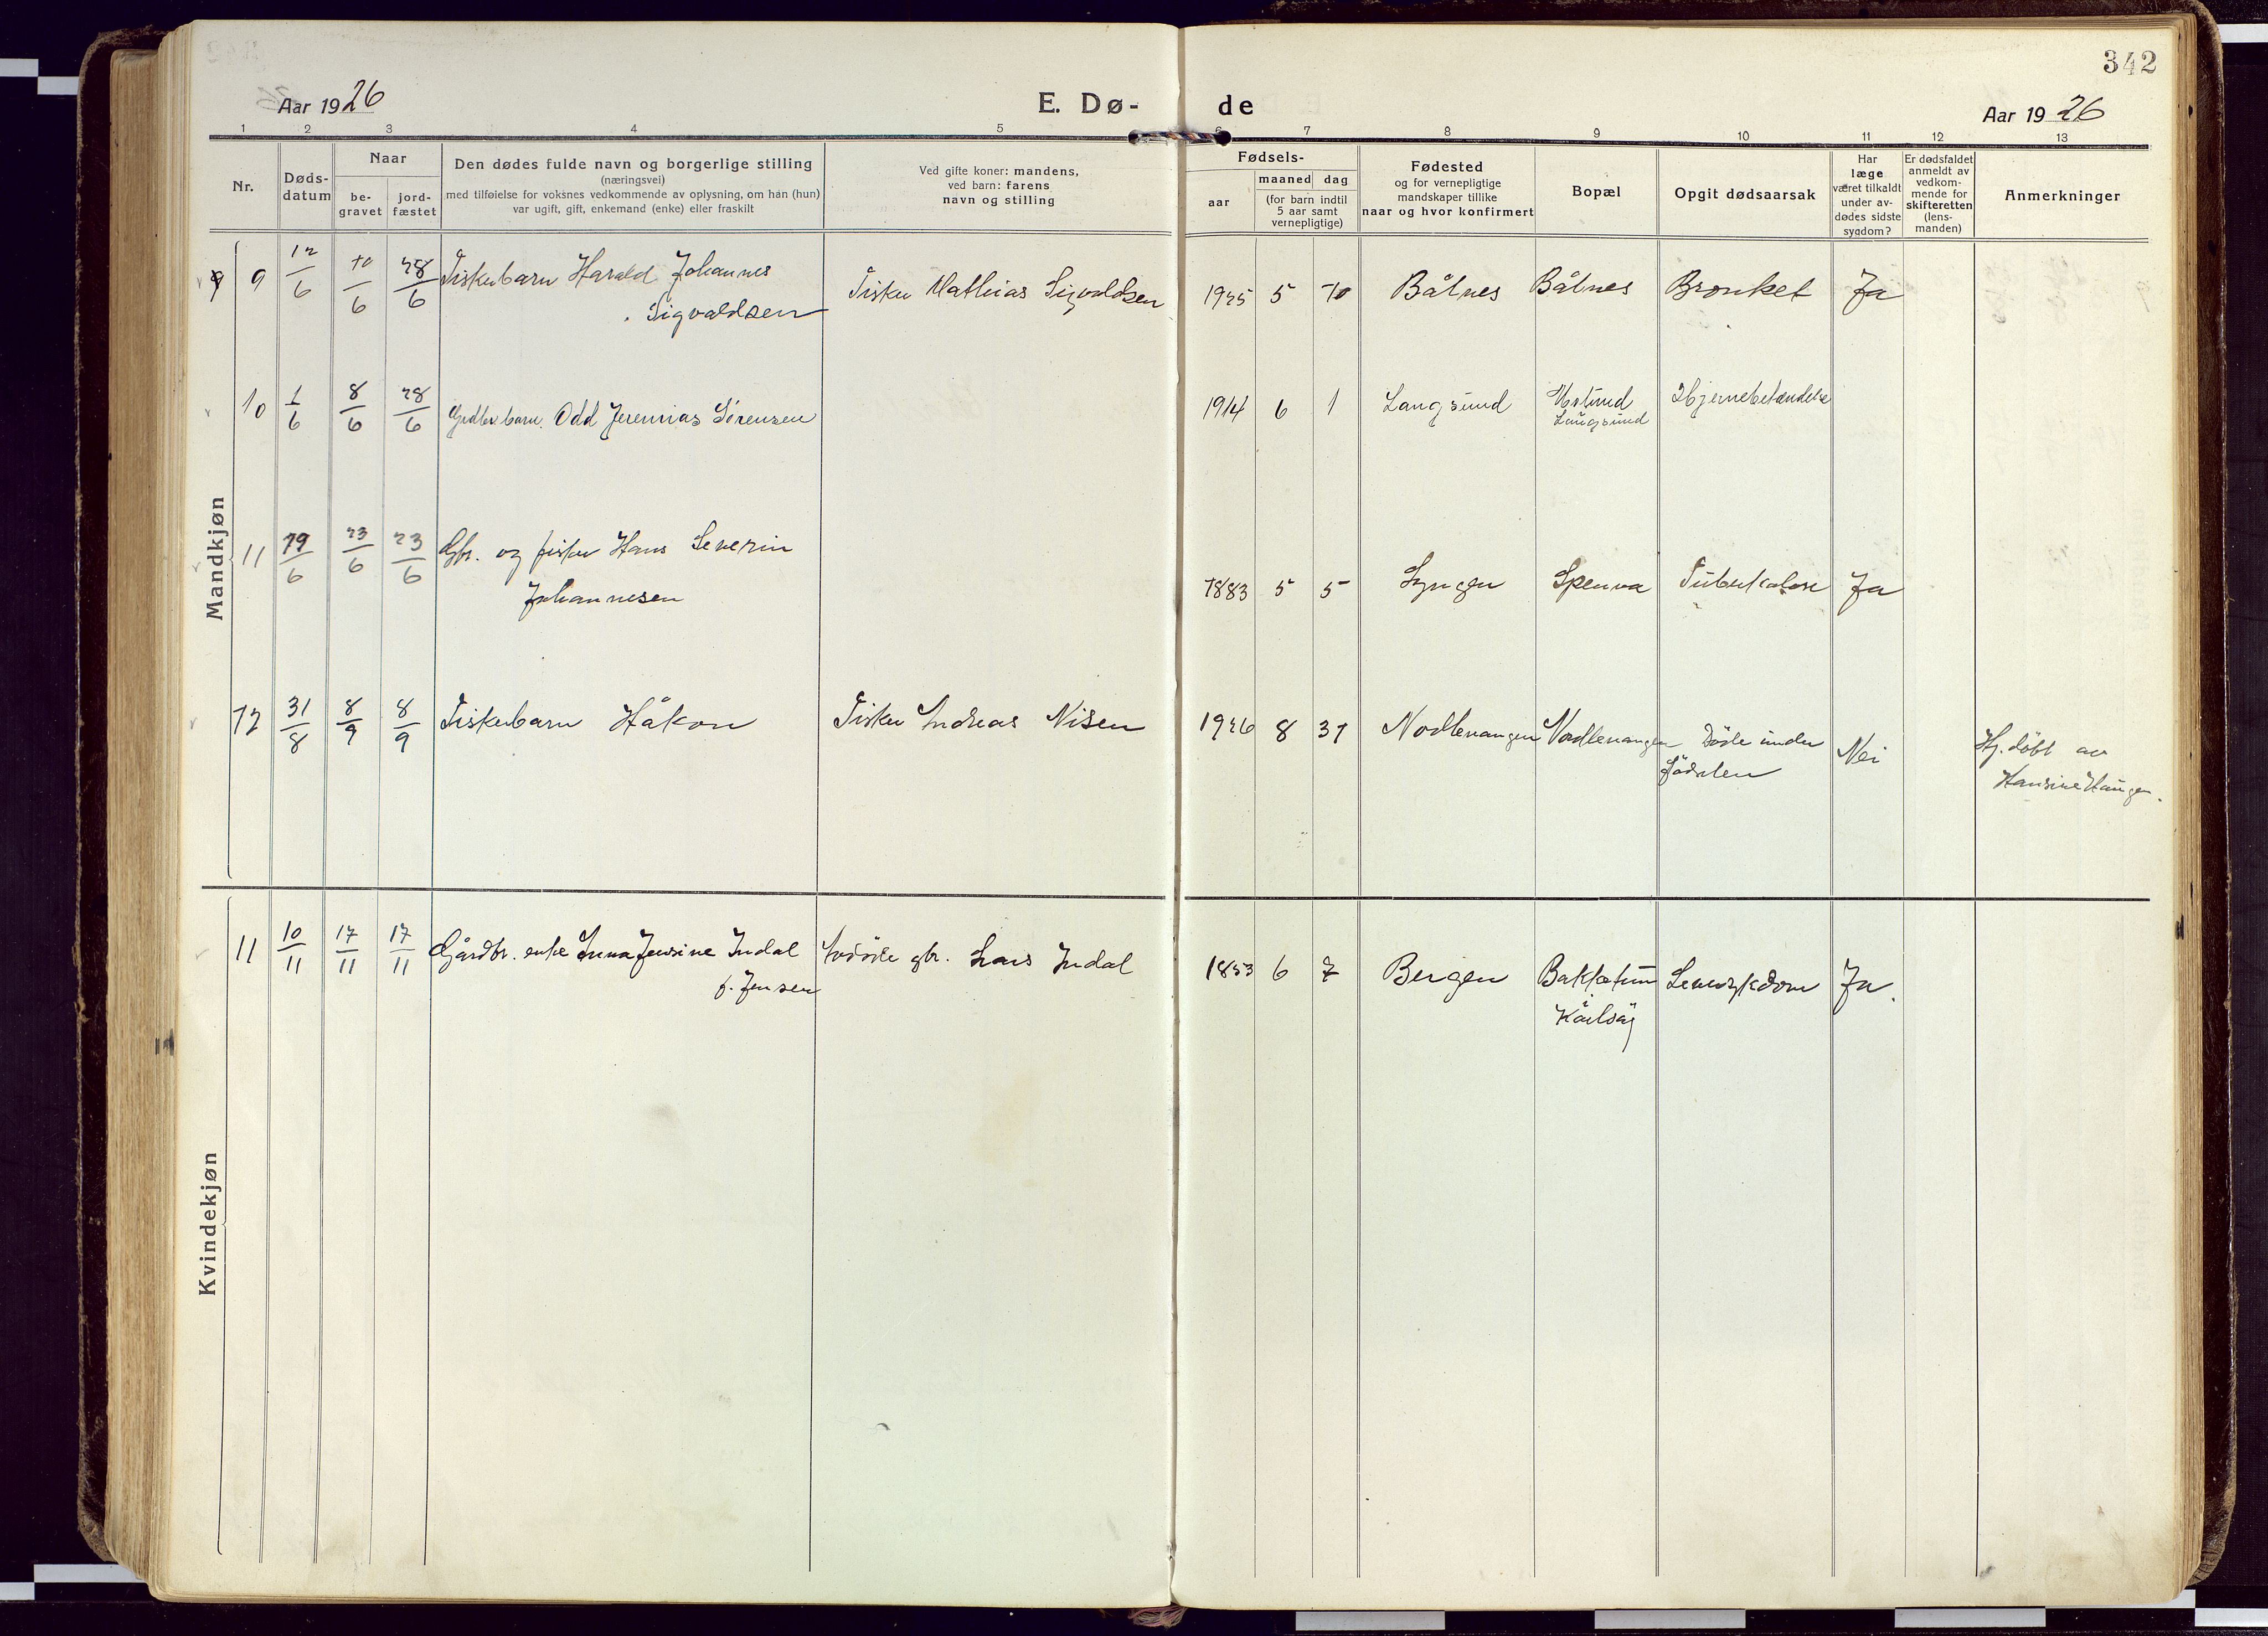 342
Aar 1926
E. Dø-
de
Aar 1926
1 2 3 4 5 6 7 8 9 10 11 12 13
Nr.
Døds-
datum
Naar
be-
gravet
jord-
fæstet
Den dødes fulde navn og borgerlige stilling
(næringsvei)
med tilføielse for voksnes vedkommende av oplysning, om han (hun)
var ugift, gift, enkemand (enke) eller fraskilt
Ved gifte koner: mandens,
ved barn: farens
navn og stilling
Fødsels-
aar
maaned dag
(for barn indtil
5 aar samt
vernepligtige)
Fødested
og for vernepligtige
mandskaper tillike
naar og hvor konfirmert
Bopæl
Opgit dødsaarsak
Har
læge
været tilkaldt
under av-
dødes sidste
sygdom?
Er dødsfaldet
anmeldt av
vedkom-
mende for
skifteretten
(lens-
manden)
Anmerkninger
Mandkjøn
9 12/6 20/6 28/6 Fiskerbarn Harald Johannes Fisker Mathias Sigvaldsen 1925 5 20 Båtnes Båtnes Bronket Ja
Sigvaldsen
10 1/6 8/6 28/6 Grdbr barn. Odd Jeremias Sørensen 1914 6 1 Langsund Langsund Hjernebetændelse
11 19/6 23/6 23/6 Gbr. og fisker Hans Severin 1883 5 5 Lyngen Spenna Tuberkolose Ja
Johannesen
12 31/8 8/9 8/9 Fiskerbarn Håkon Fisker Andreas Nisen 1926 8 31 Nordlenangen Nordlenangen Döde under Nei Hj. döbt av
födselen Hansine Haugen.
Kvindekjøn
11 10/11 17/11 17/11 Gårdbr. enke Anna Jensine Indal Avdöde gbr. Lars Indal 1853 6 7 Bergen Bakketun Ja.
f. Jensen i
Karlsöy